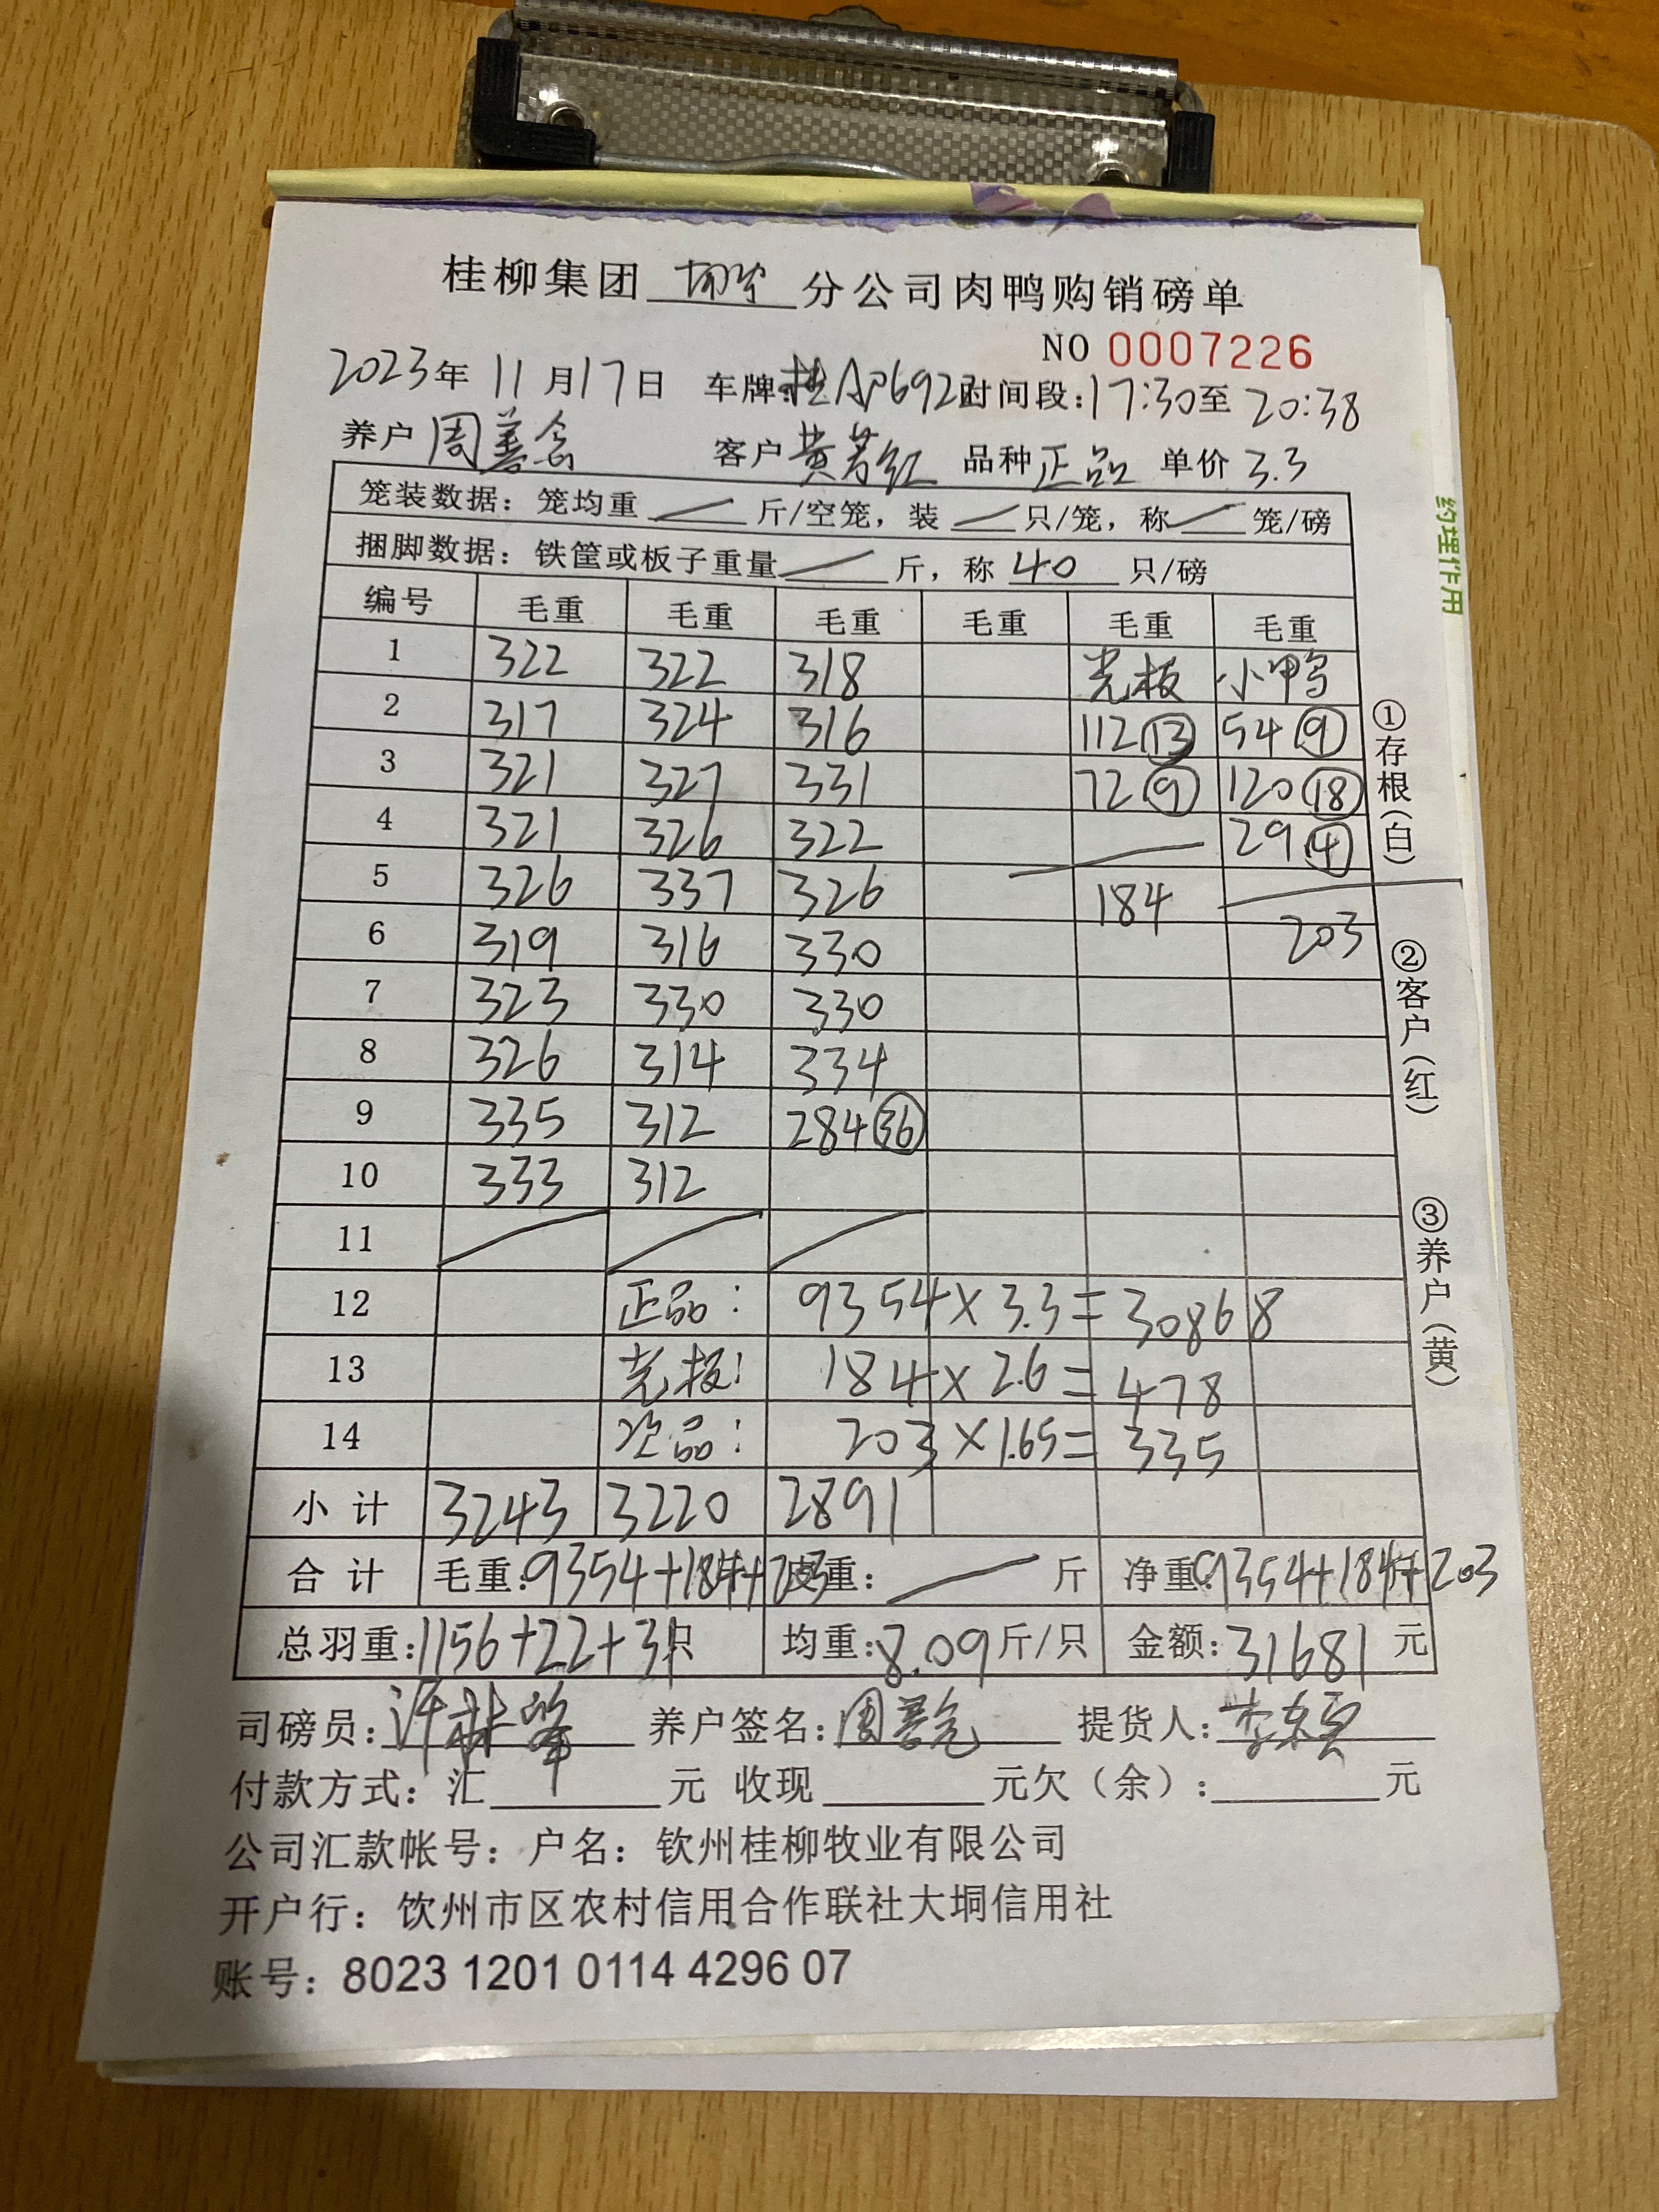 桂柳集团 分公司肉鸭购销磅单
NO 0007226
2023年 11月17日 车牌:桂 692 时间段:17:30至20:38
养户 周善念 客户 黄芳红 品种 正品 单价 3.3
笼装数据:笼均重 斤/空笼,装 只/笼,称 笼/磅
捆脚数据:铁筐或板子重量 斤,称 40 只/磅
编号 毛重 毛重 毛重 毛重 毛重 毛重
1 322 322 318 光板 小鸭
2 317 324 316 112⑬ 54⑨
3 321 327 331 72⑨ 120⑱
4 321 326 322 29④
5 326 337 326 184
6 319 316 330 203
7 323 330 330
8 326 314 334
9 335 312 284㊱
10 333 312
11
12 正品: 9354×3.3=30868
13 光板: 184×2.6=478
14 次品: 203×1.65=335
小计 3243 3220 2891
合计 毛重:9354+184+203 皮重: 斤 净重:9354+184+203
总羽重:1156+22+31只 均重:8.09斤/只 金额:31681元
司磅员: 养户签名:周善 提货人:
付款方式:汇 元 收现 元欠(余): 元
公司汇款帐号:户名:钦州桂柳牧业有限公司
开户行:饮州市区农村信用合作联社大垌信用社
账号:8023 1201 0114 4296 07
①存根(白)
②客户(红)
③养户(黄)
约理作用